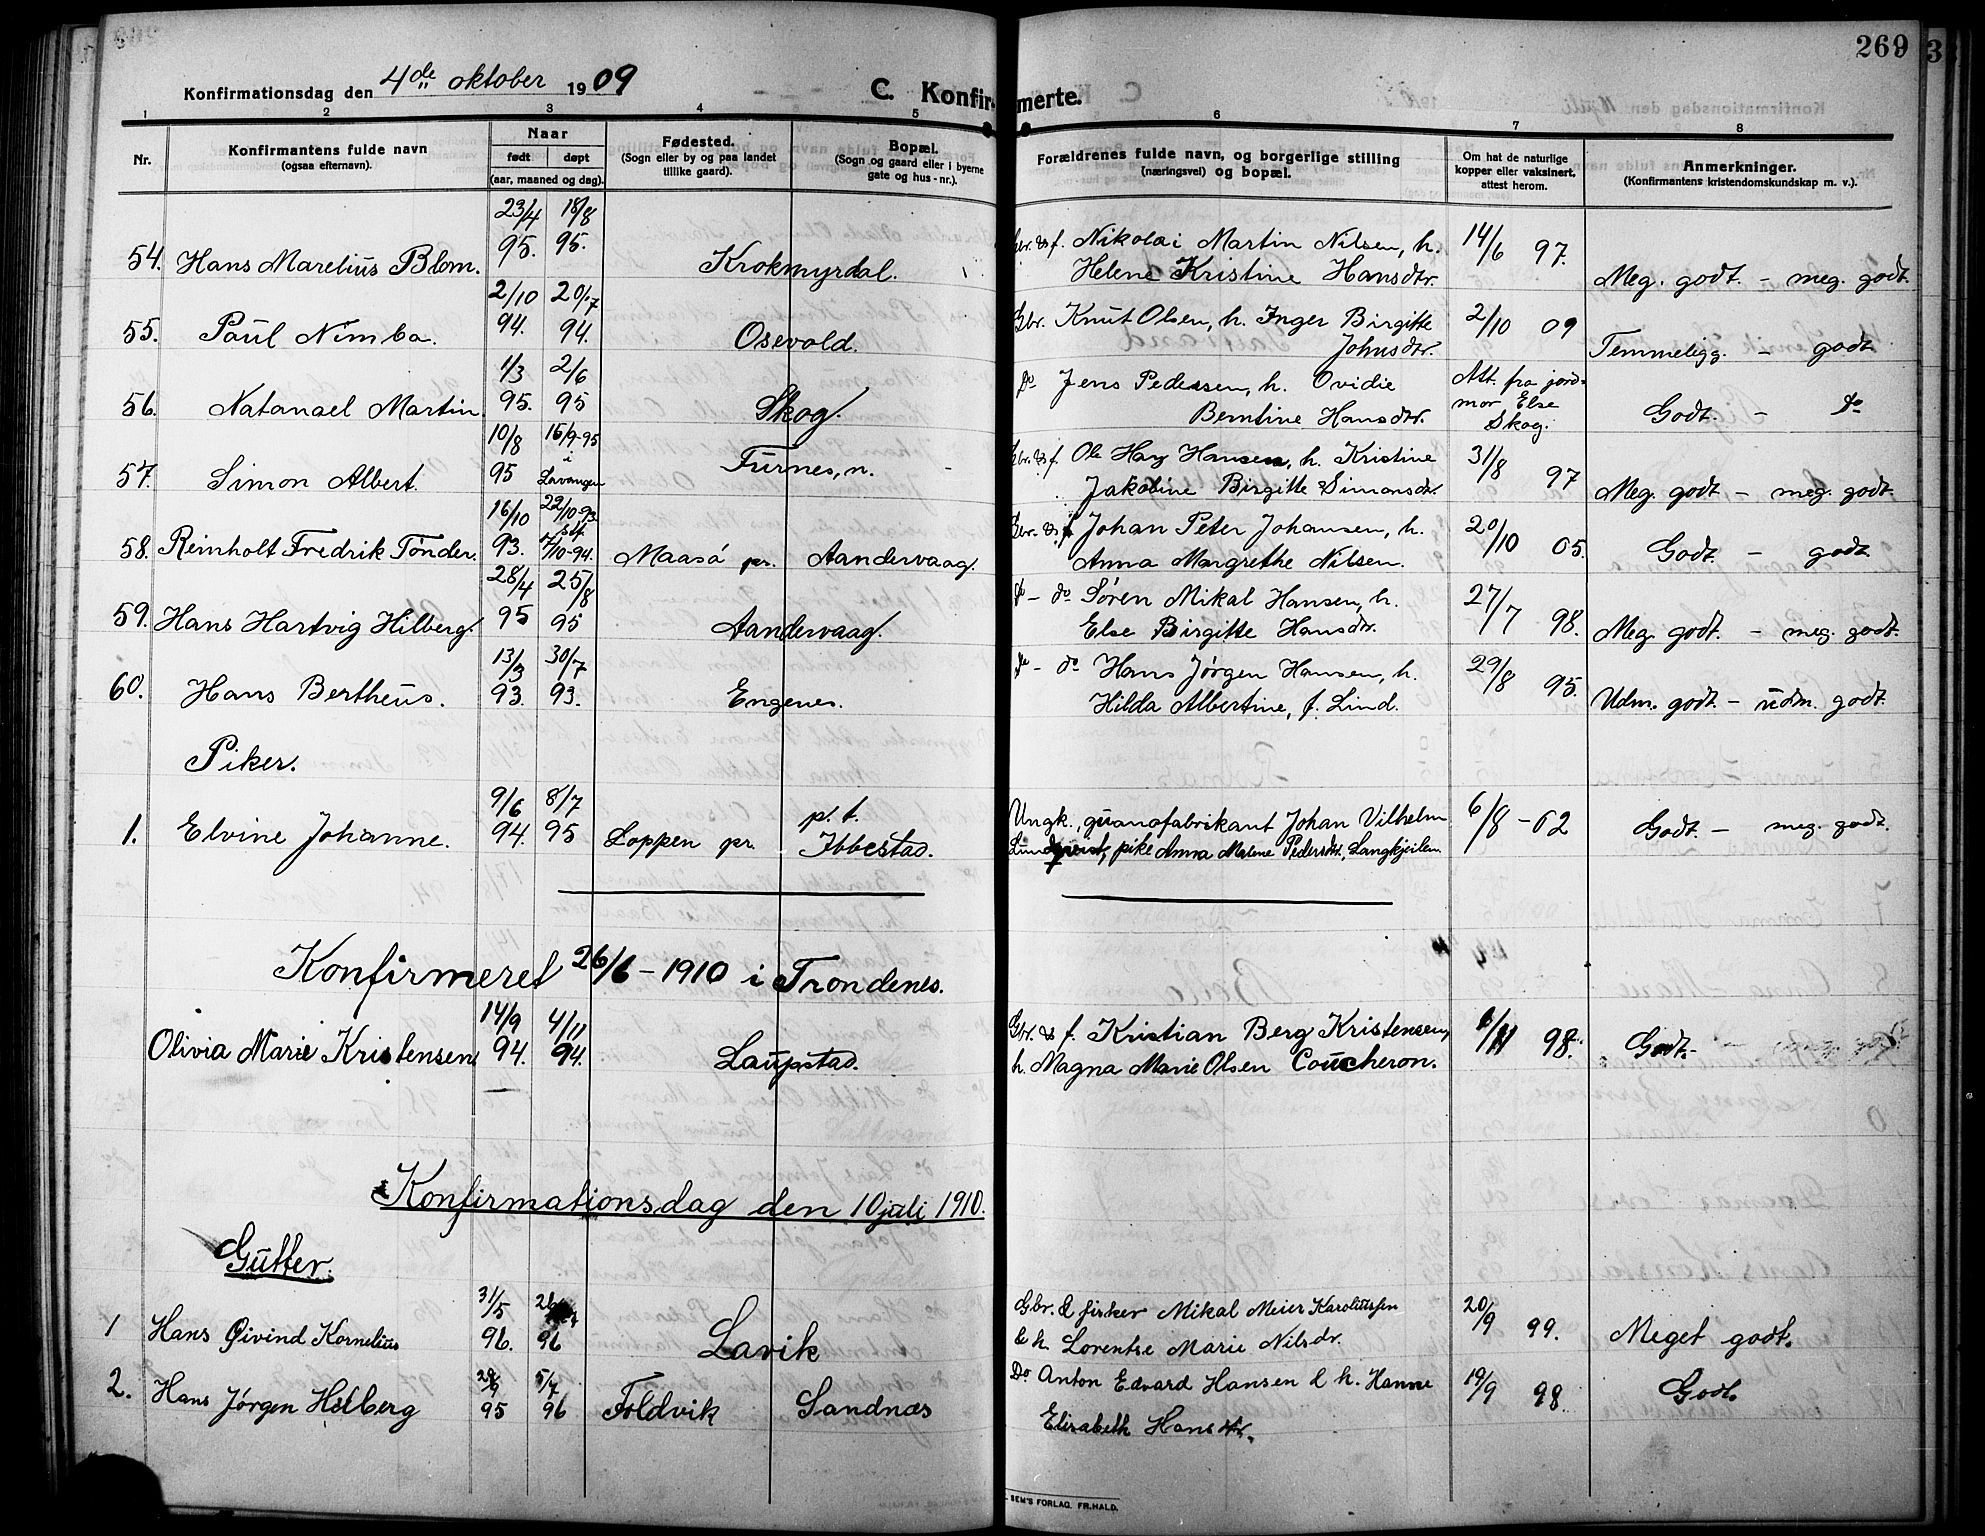 269
Konfirmationsdag den 4de oktober 1909
C. Konfirmerte.
1 2 3 4 5 6 7 8
Nr.
Konfirmantens fulde navn
(ogsaa efternavn).
Naar
født døpt
(aar, maaned og dag).
Fødested.
(Sogn eller by og paa landet
tillike gaard).
Bopæl.
(Sogn og gaard eller i byerne
gate og hus-nr.).
Forældrenes fulde navn, og borgerlige stilling
(næringsvei) og bopæl.
Om hat de naturlige
kopper eller vaksinert,
attest herom.
Anmerkninger.
(Konfirmantens kristendomskundskap m. v.).
54. Hans Marelius Blom. 23/4 95. 18/8 95. Krokmyrdal. Gbr. & f. Nikolai Martin Nilsen, h. Helene Kristine Hansdtr. 14/6 97. Meg. godt. – meg. godt.
55. Paul Nimba. 2/10 94. 20/7 94. Osevold. Gbr. Knut Olsen, h. Inger Birgitte Johnsdtr. 2/10 09 Temmeligg. – godt
56. Natanael Martin. 1/3 95. 2/6 95 Skog. Do Jens Pedersen, h. Ovidie Berntine Hansdtr. Att. fra jordmor Else Skog. Godt. – Do
57. Simon Albert. 10/8 95 16/9-95 i Lavangen Furnes, n. Gbr. & f. Ole Hay Hansen, h. Kristine Jakobine Birgitte Simonsdtr. 31/8 97 Meg. godt – meg. godt.
58. Reinholt Fredrik Tønder. 16/10 93. 22/10-93 stf. 7/10-94. Maasø pr. Aandervaag. Gbr. & f. Johan Peter Johansen, h. Anna Margrethe Nilsen. 20/10 05. Godt. – godt
59. Hans Hartvig Hilberg. 28/4 95 25/8 95 Aandervaag. Do – do Søren Mikal Hansen, h. Else Birgitte Hansdtr. 27/7 98. Meg. godt. – meg. godt.
60. Hans Bertheus. 13/3 93. 30/7 93. Engenes. Do – do Hans Jørgen Hansen, h. Hilda Albertine, f. Lind. 29/8 95. Udm. godt. – udm. godt.
Piker.
1. Elvine Johanne. 9/6 94. 8/7 95 Loppen pr. p. t. Ibbestad. Ungk., guanofabrikant Johan Vilhelm pike Anna Malene Pedersdt., Langkjeilen. 6/8 – 02 Godt – meg. godt.
Konfirmeret 26/6 – 1910 i Trondenes.
Olivia Marie Kristensen 14/9 94. 4/11 94. Laupstad. Gbr. & f. Kristian Berg Kristensen, h. Magna Marie Olsen Coucheron. /11 98. Godt. –
Konfirmationsdag den 10 juli 1910.
Gutter.
1 Hans Øivind Kornelius 31/5 96. 26/ 96 Lavik Gbr. & fisker Mikal Meier Karoliussen & h. Lorentse Marie Nilsdr. 20/9 99. Meget godt.
2. Hans Jørgen Helberg 95 5/7 96 Foldvik Sandnæs Do Anton Edvard Hansen & h. Hanne Elisabeth Hansdtr. 19/9 98. Godt.
SEM'S FORLAG. FR.HALD.